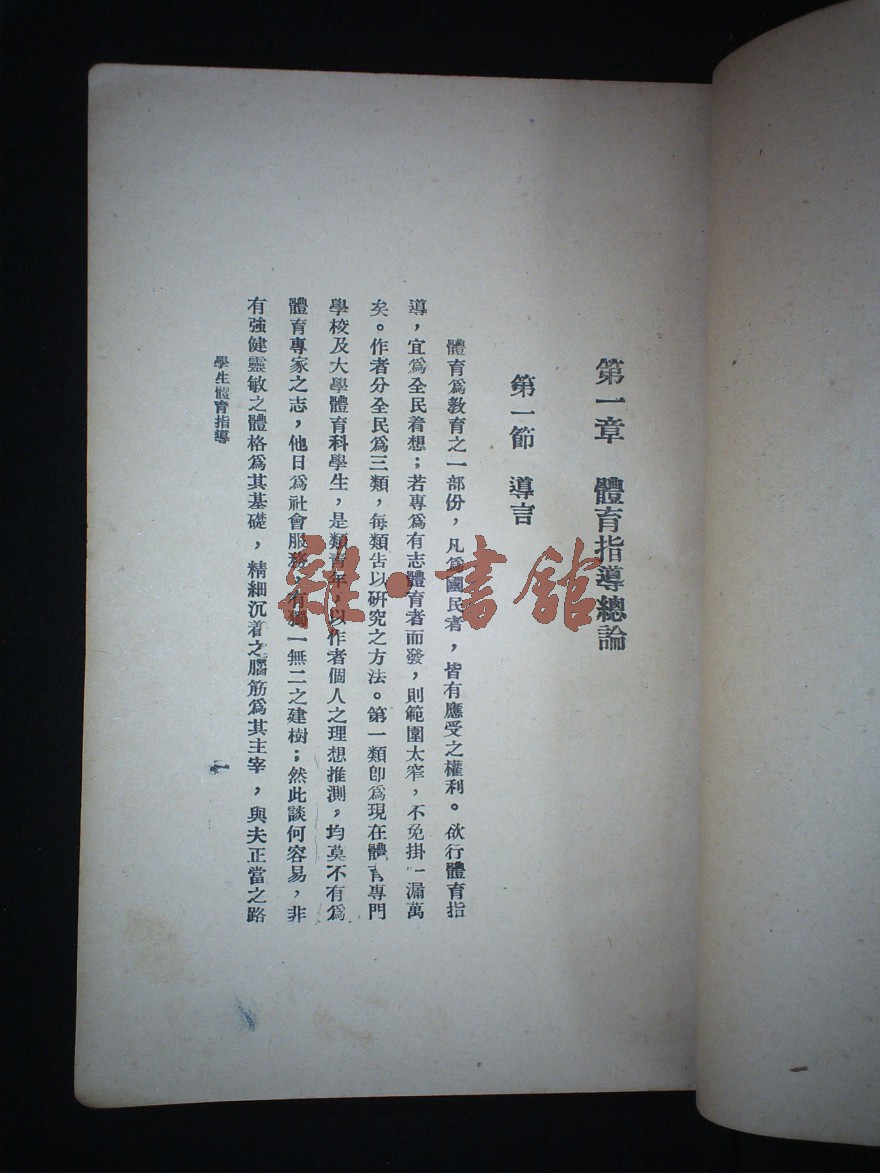 第一章　體育指導總論
第一節　導言
體育爲教育之一部份，凡爲國民者，皆有應受之權利。欲行體育指
導，宜爲全民着想；若專爲有志體育者而發，則範圍太窄，不免掛一漏萬
矣。作者分全民爲三類，每類告以研究之方法。第一類卽爲現在體育專門
學校及大學體育科學生，是類青年，以作者個人之理想推測，均莫不有爲
體育專家之志，他日爲社會服務，有獨一無二之建樹；然此談何容易，非
有強健靈敏之體格爲其基礎，精細沉着之腦筋爲其主宰，與夫正當之路
學生體育指導
一
雜·書館